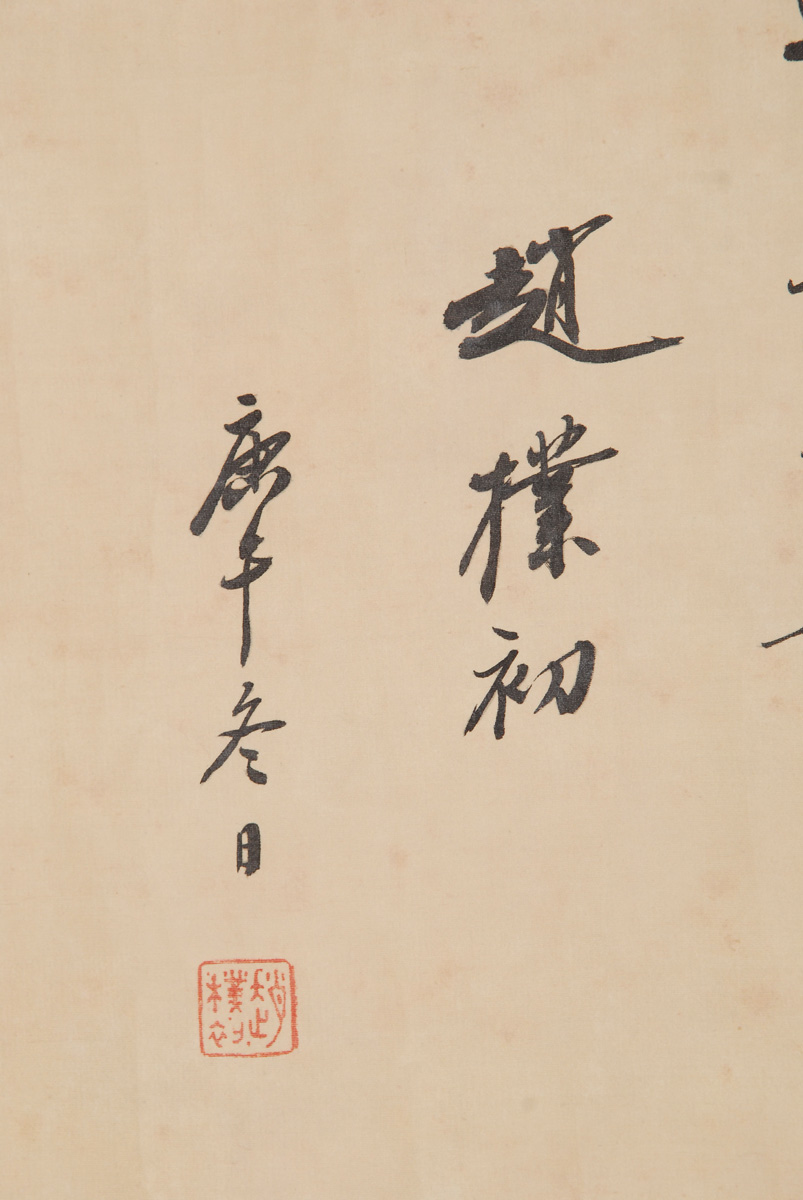 趙樸初
庚午冬日
趙樸初